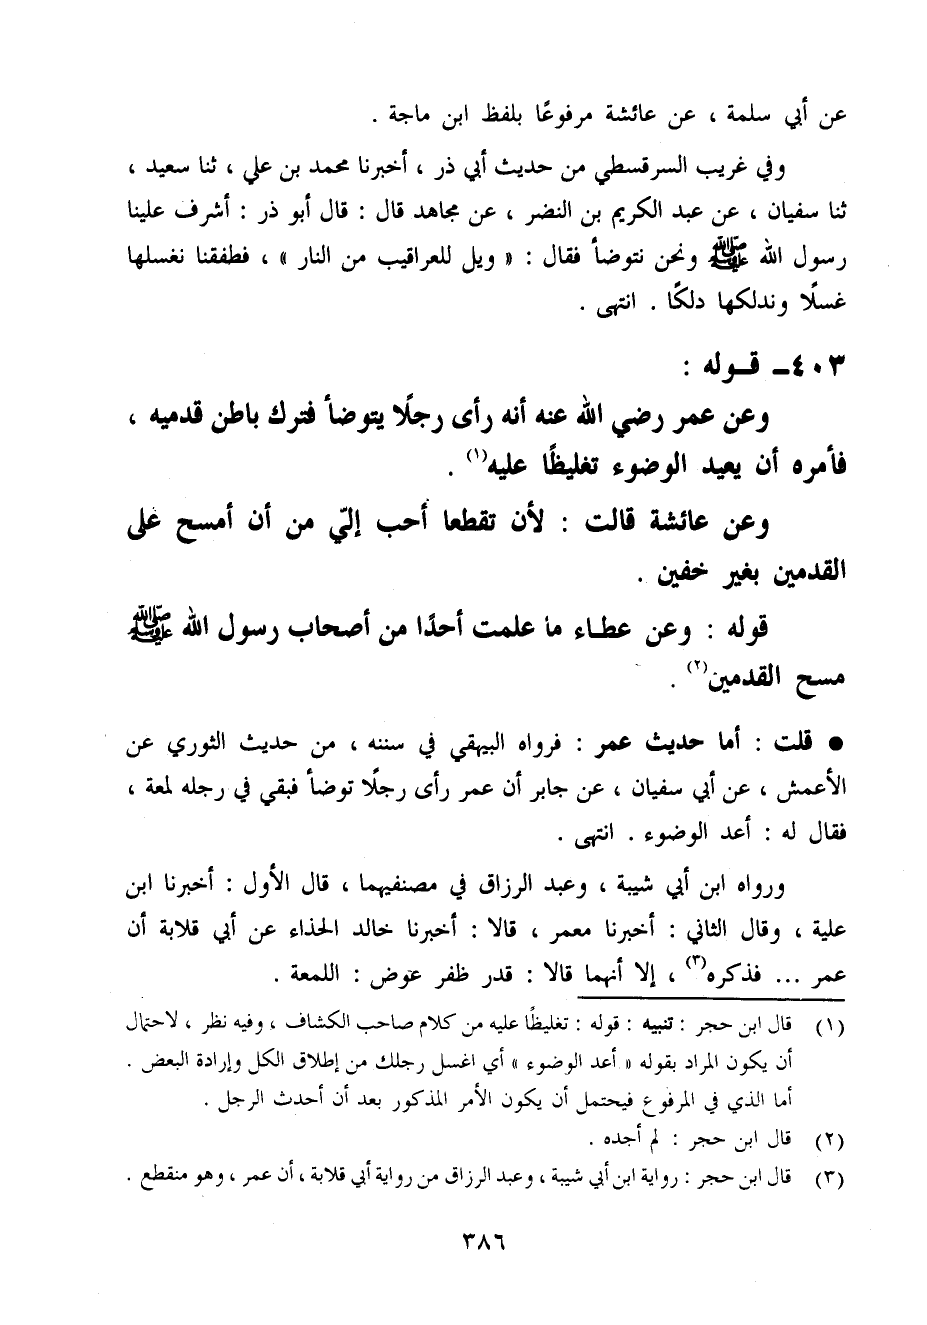 عن أبي سلمة ، عن عائشة مرفوعًا بلفظ ابن ماجة .
وفي غريب السرقسطي من حديث أبي ذر ، أخبرنا محمد بن علي ، ثنا سعيد ،
ثنا سفيان ، عن عبد الكريم بن النضر ، عن مجاهد قال : قال أبو ذر : أشرف علينا
رسول الله ﷺ ونحن نتوضأ فقال : « ويل للعراقيب من النار » ، فطفقنا نغسلها
غسلًا وندلكها دلكًا . انتهى .
٤٠٣ـ قـولـه :
وعن عمر رضي الله عنه أنه رأى رجلًا يتوضأ فترك باطن قدميه ،
فأمره أن يعيد الوضوء تغليظًا عليه(١) .
وعن عائشة قالت : لأن تقطعا أحب إليّ من أن أمسح على
القدمين بغير خفين .
قوله : وعن عطـاء ما علمت أحدًا من أصحاب رسول الله ﷺ
مسح القدمين(٢) .
● قلت : أما حديث عمر : فرواه البيهقي في سننه ، من حديث الثوري عن
الأعمش ، عن أبي سفيان ، عن جابر أن عمر رأى رجلًا توضأ فبقي في رجله لمعة ،
فقال له : أعد الوضوء . انتهى .
ورواه ابن أبي شيبة ، وعبد الرزاق في مصنفيهما ، قال الأول : أخبرنا ابن
علية ، وقال الثاني : أخبرنا معمر ، قالا : أخبرنا خالد الحذاء عن أبي قلابة أن
عمر ... فذكره(٣) ، إلا أنهما قالا : قدر ظفر عوض : اللمعة .
(١) قال ابن حجر : تنبيه : قوله : تغليظًا عليه من كلام صاحب الكشاف ، وفيه نظر ، لاحتمال
أن يكون المراد بقوله « أعد الوضوء » أي اغسل رجلك من إطلاق الكل وإرادة البعض .
أما الذي في المرفوع فيحتمل أن يكون الأمر المذكور بعد أن أحدث الرجل .
(٢) قال ابن حجر : لم أجده .
(٣) قال ابن حجر : رواية ابن أبي شيبة ، وعبد الرزاق من رواية أبي قلابة ، أن عمر ، وهو منقطع .
٣٨٦